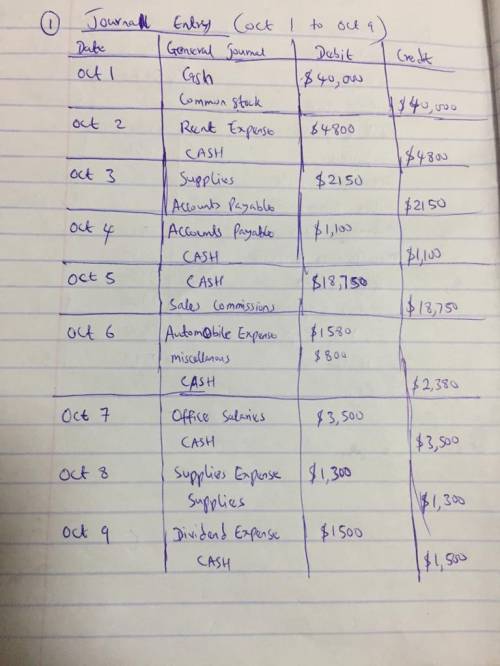 ① Journal Entry (Oct 1 to Oct 9)
Date General Journal Debit Credit
Oct 1 Cash $40,000
Common stock $40,000
Oct 2 Rent Expense $4800
CASH $4800
Oct 3 Supplies $2150
Accounts Payable $2150
Oct 4 Accounts Payable $1,100
CASH $1,100
Oct 5 CASH $18,750
Sales Commissions $18,750
Oct 6 Automobile Expense $1580
miscellanous $800
CASH $2,380
Oct 7 Office Salaries $3,500
CASH $3,500
Oct 8 Supplies Expense $1,300
Supplies $1,300
Oct 9 Dividend Expense $1500
CASH $1,500